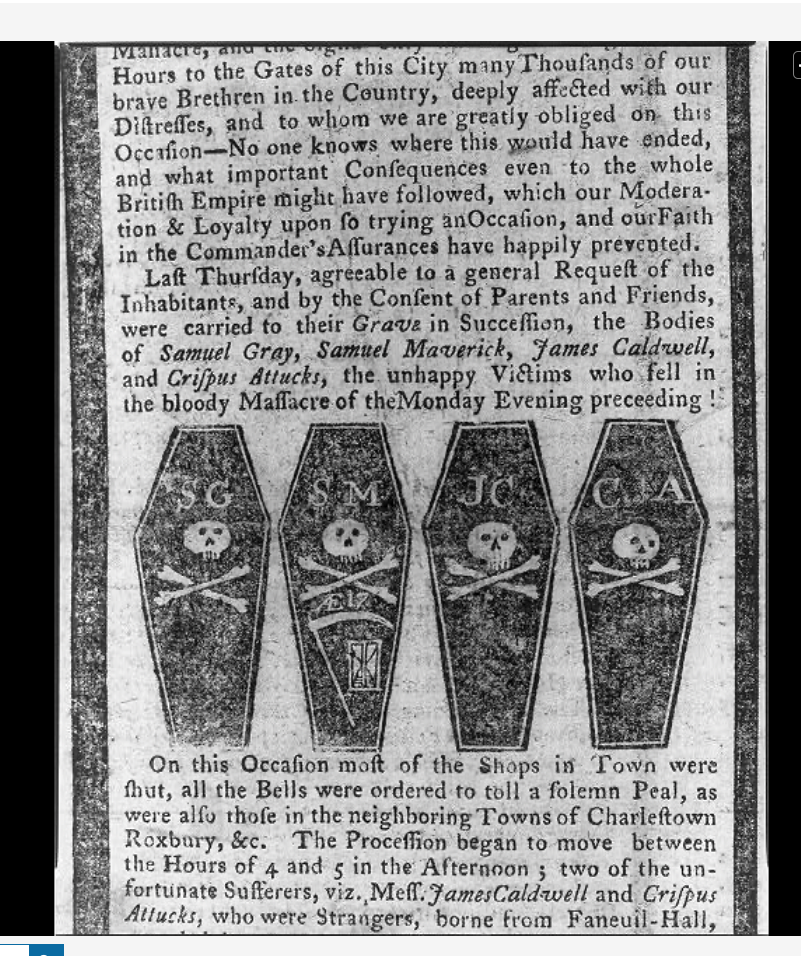 Hours to the Gates of this City many Thouſands of our
brave Brethren in the Country, deeply affected with our
Diſtreſſes, and to whom we are greatly obliged on this
Occaſion—No one knows where this would have ended,
and what important Conſequences even to the whole
Britiſh Empire might have followed, which our Modera-
tion & Loyalty upon ſo trying an Occaſion, and our Faith
in the Commander's Aſſurances have happily prevented.
Laſt Thurſday, agreeable to a general Requeſt of the
Inhabitants, and by the Conſent of Parents and Friends,
were carried to their Grave in Succeſſion, the Bodies
of Samuel Gray, Samuel Maverick, James Caldwell,
and Criſpus Attucks, the unhappy Victims who fell in
the bloody Maſſacre of the Monday Evening preceeding !
SG SM JC CA
Æ 17
On this Occaſion moſt of the Shops in Town were
ſhut, all the Bells were ordered to toll a ſolemn Peal, as
were alſo thoſe in the neighboring Towns of Charleſtown
Roxbury, &c. The Proceſſion began to move between
the Hours of 4 and 5 in the Afternoon ; two of the un-
fortunate Sufferers, viz. Meſſ. James Caldwell and Criſpus
Attucks, who were Strangers, borne from Faneuil-Hall,